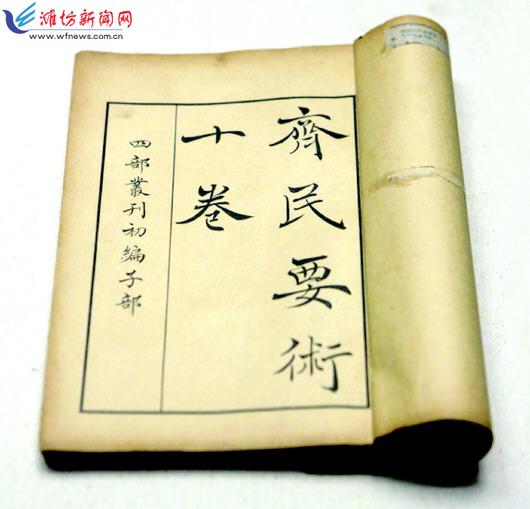 潍坊新闻网
www.wfnews.com.cn
齊民要術
十卷
四部叢刊初編子部